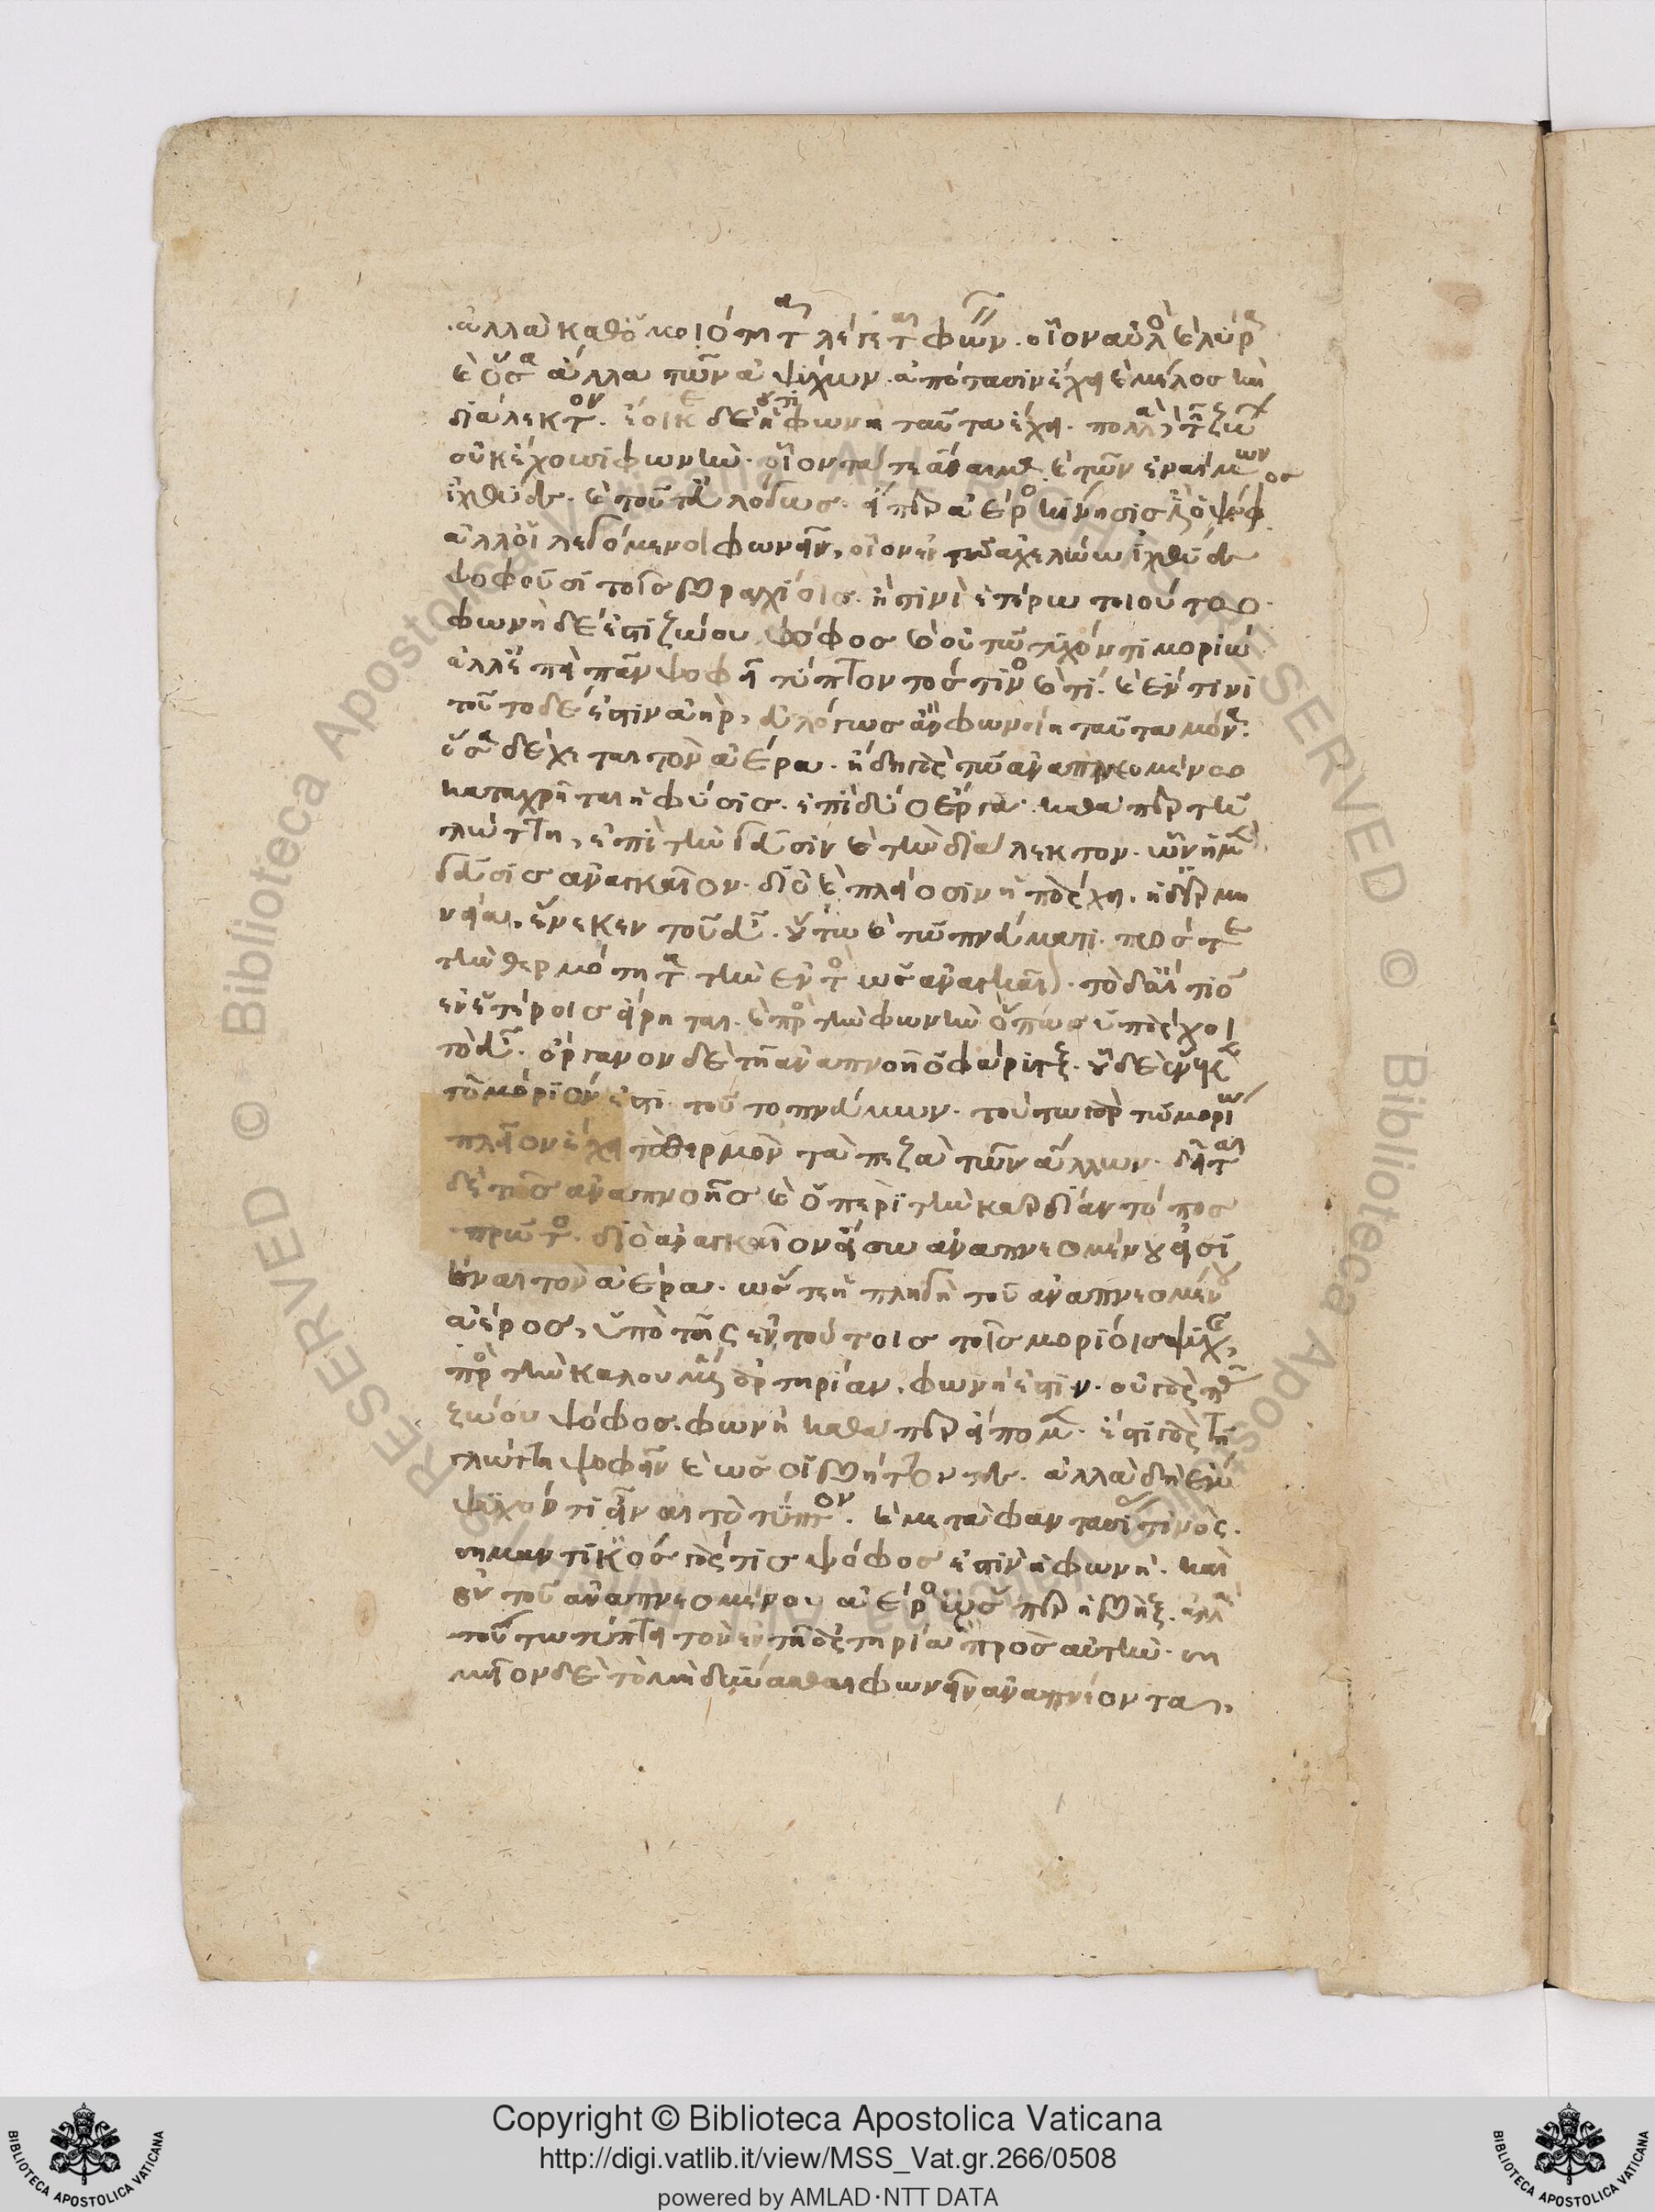 ἀλλὰ καθ' ὁμοιότητα λέγεται φωνεῖν. οἷον αὐλὸς καὶ λύρα
καὶ ὅσα ἄλλα τῶν ἀψύχων ἀπότασιν ἔχει καὶ μέλος καὶ
διάλεκτον. ἔοικε δὲ ὅτι ἡ φωνὴ ταῦτα ἔχει. πολλὰ δὲ τῶν ζώων
οὐκ ἔχουσι φωνήν. οἷον τά τε ἄναιμα καὶ τῶν ἐναίμων
ἰχθύες. καὶ τοῦτ' εὐλόγως. εἴπερ ἀέρος κίνησίς ἐστιν ὁ ψόφος
ἀλλ' οἱ λεγόμενοι φωνεῖν, οἷον ἐν τῷ ἀχελώῳ ἰχθύες
ψοφοῦσι τοῖς βραγχίοις. ἤ τινι ἑτέρῳ τοιούτῳ.
φωνὴ δέ ἐστι ζώου ψόφος καὶ οὐ τῷ τυχόντι μορίῳ
ἀλλ' ἐπεὶ πᾶν ψοφεῖ τύπτοντός τινος καί τι. καὶ ἔν τινι
τοῦτο δέ ἐστιν ἀήρ, εὐλόγως ἂν φωνοίη ταῦτα μόνα.
ὅσα δέχεται τὸν ἀέρα. ἤδη γὰρ τῷ ἀναπνεομένῳ
καταχρῆται ἡ φύσις. ἐπὶ δύο ἔργα. καθάπερ τῇ
γλώττῃ, ἐπὶ τὴν γεῦσιν καὶ τὴν διάλεκτον. ὧν ἡ μὲν
γεῦσις ἀναγκαῖον. διὸ καὶ πλείοσιν ὑπάρχει. ἡ δ' ἑρμη
νεία, ἕνεκεν τοῦ εὖ. οὕτω καὶ τῷ πνεύματι. πρός τε
τὴν θερμότητα τὴν ἐντὸς ὡς ἀναγκαῖον. τὸ δ' αἴτιον
ἐν ἑτέροις εἴρηται. καὶ πρὸς τὴν φωνὴν ὅπως ὑπάρχοι
τὸ εὖ. ὄργανον δὲ τῇ ἀναπνοῇ ὁ φάρυγξ. οὗ δὲ ἕνεκα
τὸ μόριόν ἐστι τοῦτο πνεύμων. τούτῳ γὰρ τῷ μορίῳ
πλεῖον ἔχει τὸ θερμὸν τὰ πεζὰ τῶν ἄλλων. δεῖται
δὲ τῆς ἀναπνοῆς καὶ ὁ περὶ τὴν καρδίαν τόπος
πρῶτος. διὸ ἀναγκαῖον εἴσω ἀναπνεομένου εἰσι
έναι τὸν ἀέρα. ὥστε ἡ πληγὴ τοῦ ἀναπνεομένου
ἀέρος, ὑπὸ τῆς ἐν τούτοις τοῖς μορίοις ψυχῆς,
πρὸς τὴν καλουμένην ἀρτηρίαν, φωνή ἐστιν. οὐ γὰρ πᾶς
ζώου ψόφος φωνὴ καθάπερ εἴπομεν. ἔστι γὰρ τῇ
γλώττῃ ψοφεῖν καὶ ὡς οἱ βήττοντες. ἀλλὰ δεῖ ἔμ
ψυχόν τι εἶναι τὸ τύπτον. καὶ μετὰ φαντασίας τινός.
σημαντικὸς γάρ τις ψόφος ἐστὶν ἡ φωνή. καὶ
οὐ τοῦ ἀναπνεομένου ἀέρος ὥσπερ ἡ βήξ. ἀλλὰ
τούτῳ τύπτει τὸν ἐν τῇ ἀρτηρίᾳ πρὸς αὐτήν. ση
μεῖον δὲ τὸ μὴ δύνασθαι φωνεῖν ἀναπνέοντα,
Copyright © Biblioteca Apostolica Vaticana
http://digi.vatlib.it/view/MSS_Vat.gr.266/0508
powered by AMLAD·NTT DATA